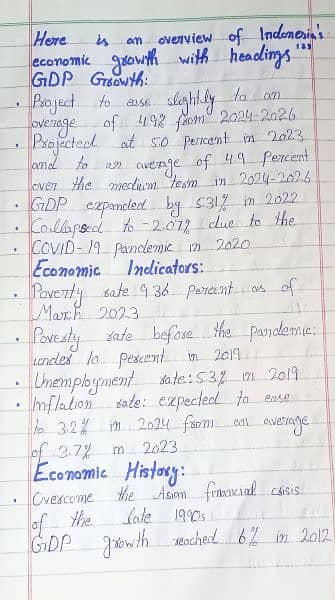 Here is an overview of Indonesia's
economic growth with headings "23
GDP Growth:
• Project to ease slightly to an
average of 4.9% from 2024-2026
• Projected at 5.0 percent in 2023
and to an average of 4.9 Percent
over the medium term in 2024-2026
• GDP expanded by 5.31% in 2022
• Collapsed to -2.07% due to the
• COVID-19 pandemic in 2020
Economic Indicators:
• Poverty rate 9.36 percent as of
March 2023
• Poverty rate before the pandemic:
under 10 percent in 2019
• Unemployment rate: 5.3% in 2019
• Inflation rate: expected to ease
to 3.2% in 2024 from an average
of 3.7% in 2023
Economic History:
• Overcome the Asian financial crisis
of the late 1990s
GDP growth reached 6% in 2012